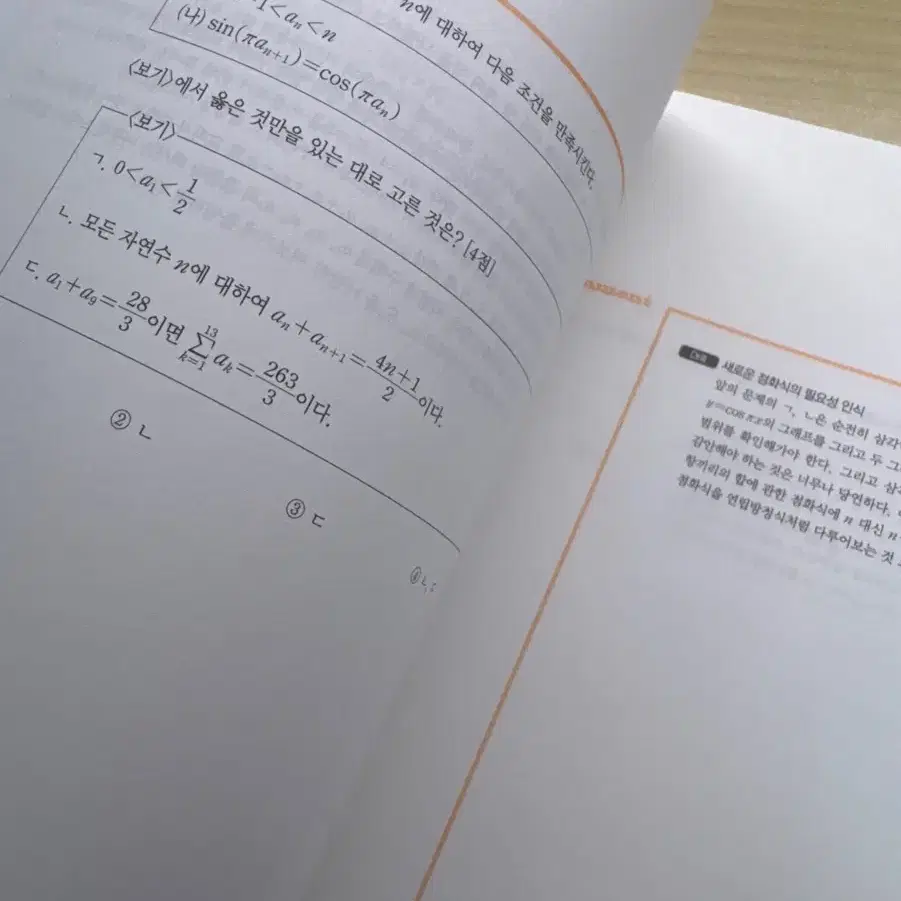 n에 대하여 다음 조건을 만족시킨다.
1<aₙ<n
(나) sin(πaₙ₊₁)=cos(πaₙ)
〈보기〉에서 옳은 것만을 있는 대로 고른 것은? [4점]
〈보기〉
ㄱ. 0<a₁<1/2
ㄴ. 모든 자연수 n에 대하여 aₙ+aₙ₊₁=(4n+1)/2이다.
ㄷ. a₁+a₉=28/3이면 ∑(k=1)^(13) aₖ=263/3이다.
② ㄴ
③ ㄷ
④ ㄴ,
새로운 점화식의 필요성 인식
앞의 문제의 ㄱ, ㄴ은 순전히 삼각
y=cos πx의 그래프를 그리고 두 그
범위를 확인해가야 한다. 그리고 삼
감안해야 하는 것은 너무나 당연하다.
항끼리의 합에 관한 점화식에 n 대신 n
점화식을 연립방정식처럼 다루어보는 것